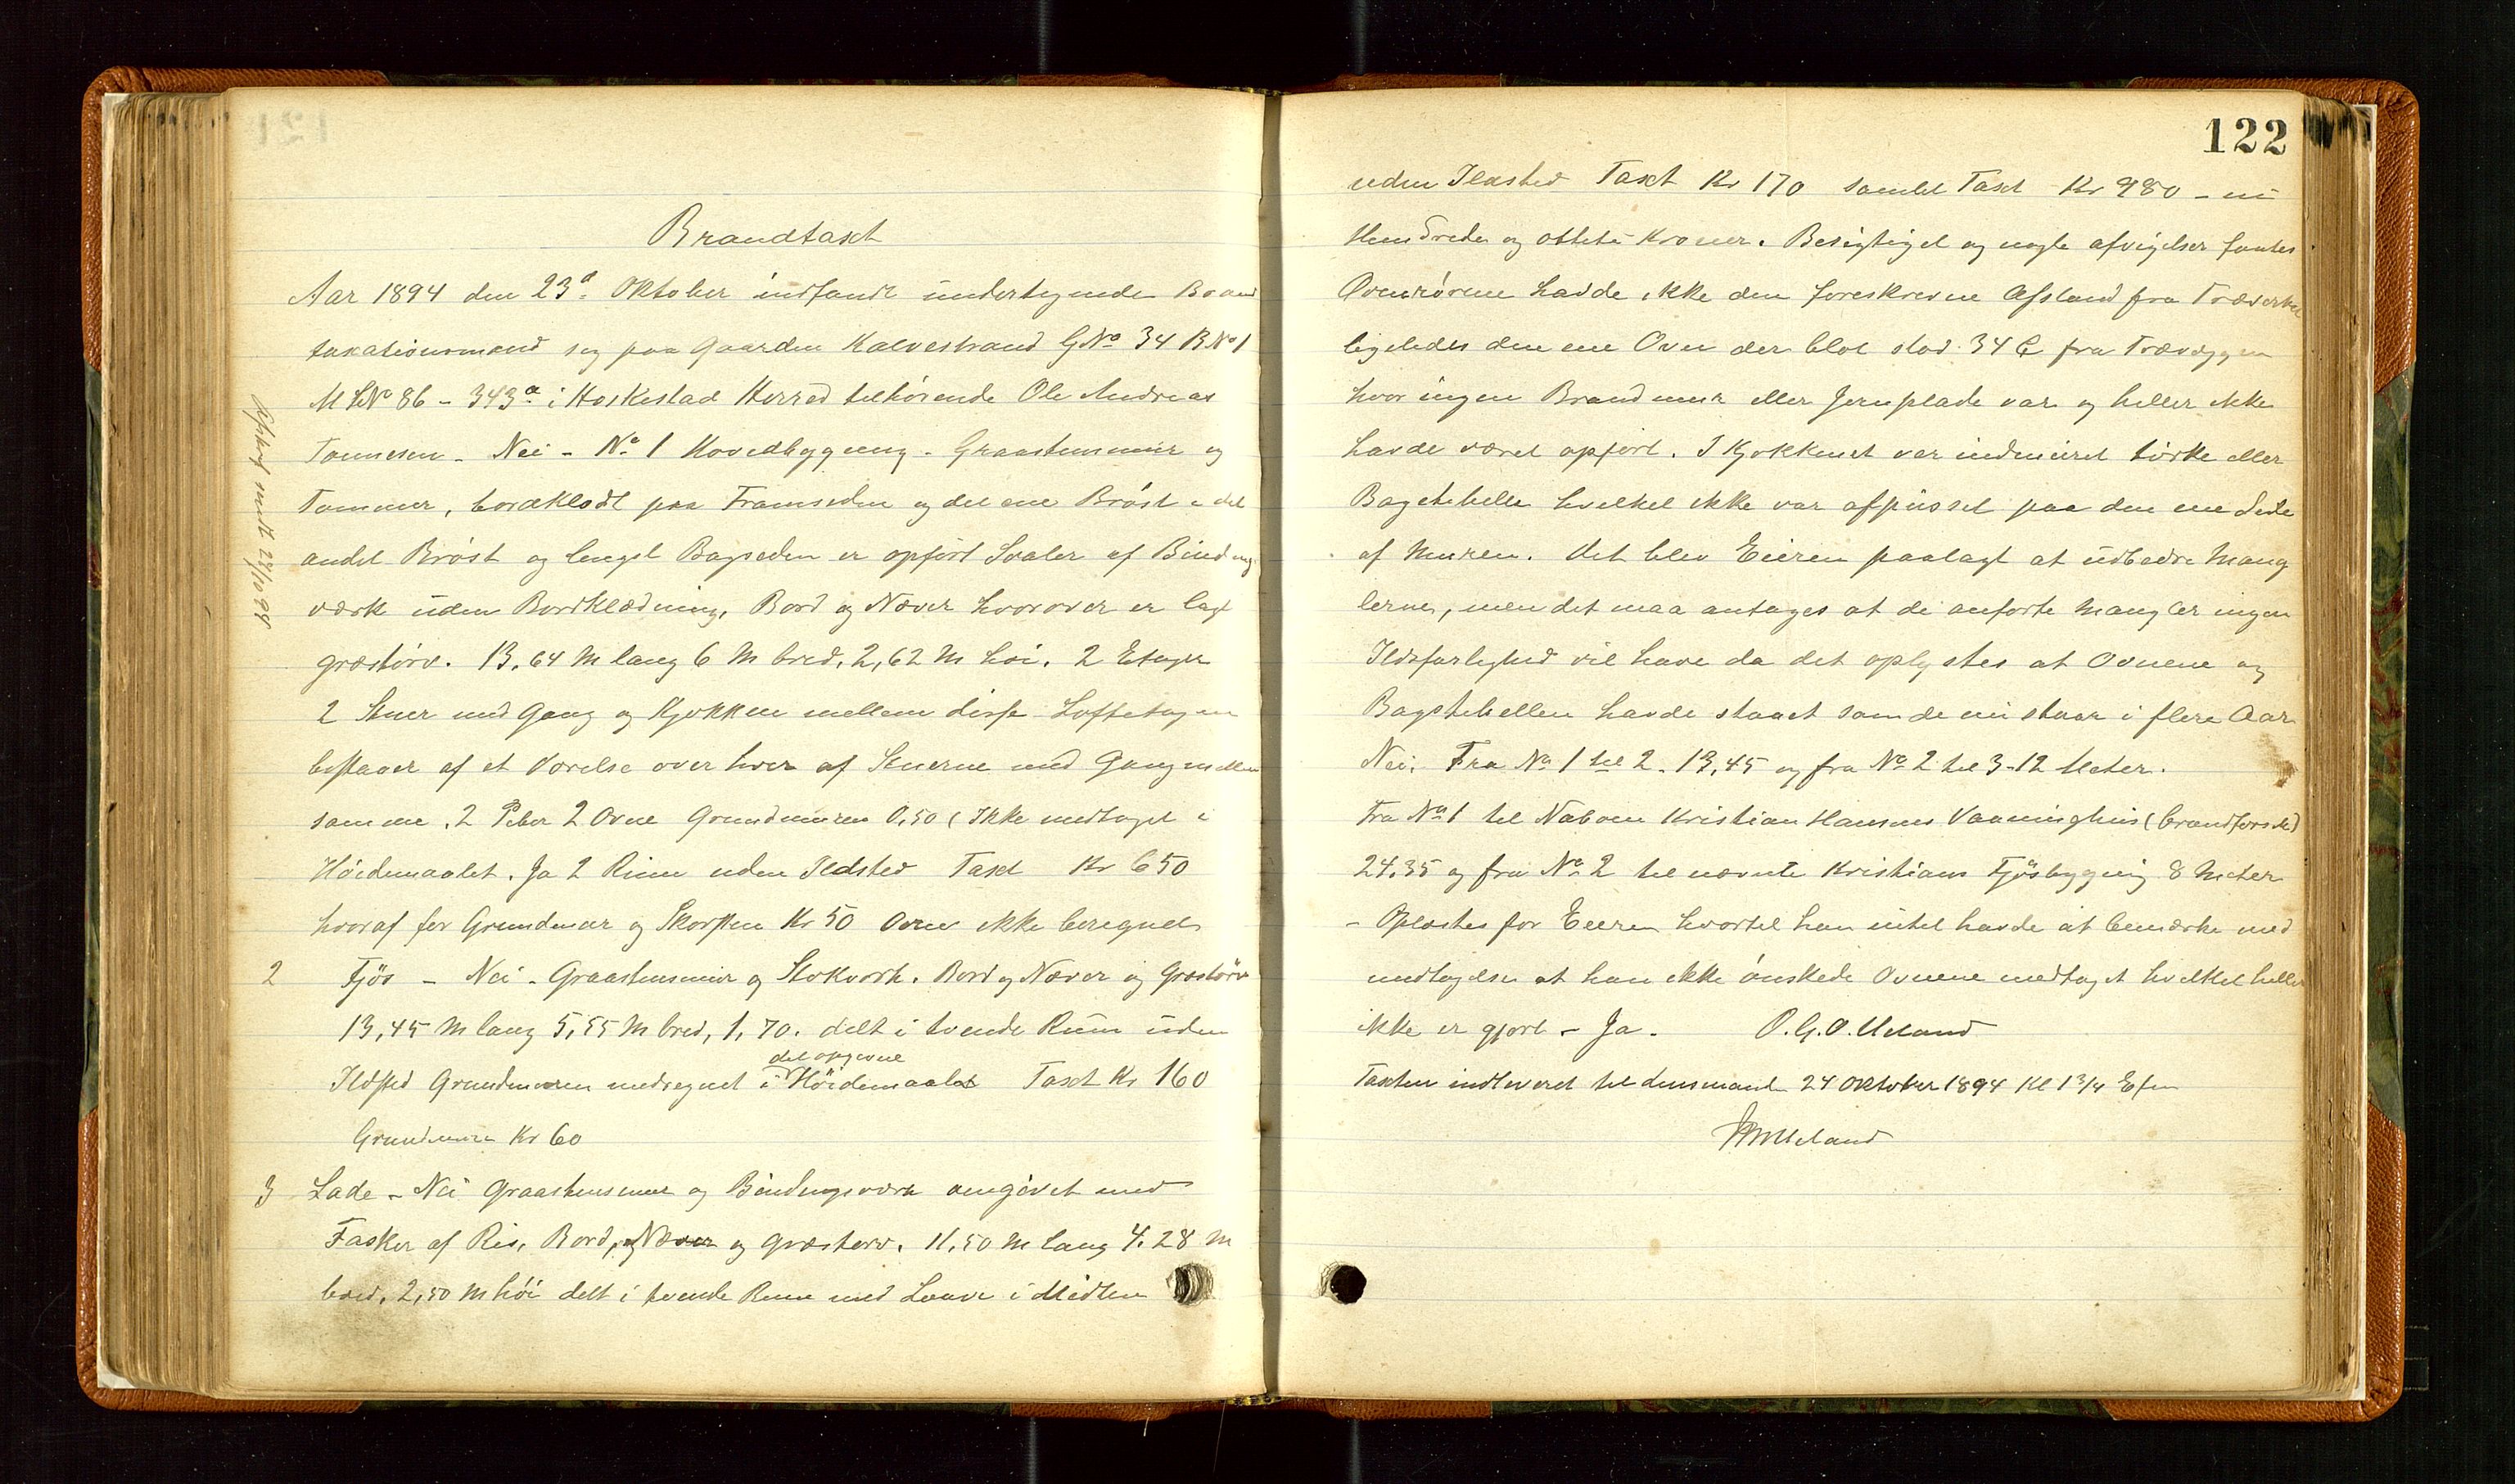 Brandtaxt
Aar 1894 den 23d. Oktober indfandt undertegnede Brand
taxationsmand sig paa Gaarden Kalvestrand GNo 34 BNo 1
MLNo 86 - 343a i Haskestad Herred tilhørende Ole Andreas
Tønnesen - Nei - No. 1 Hovedbygning - Graastensmur og
Tømmer, bordklædt paa Framsiden og det ene Brøst - det
andet Brøst og langs Bagsiden er opført Svaler af Bindings
værk uden Bordklædning, Bord og Næver hvorover er lagt
græstørv. 13,64 M lang 6 M bred, 2,62 M høi. 2 Etager
2 Stuer med Gang og Kjøkken mellem disse Loftetagen
bestaaer af et Værelse over hver af Stuerne med Gang mellem
samme. 2 Piber 2 Ovne Grundmuren 0,50 (Ikke medtaget i
Høidemaalet. Ja 2 Rum uden Ildsted Taxt Kr 650
hvoraf for Grundmur og Skorsten Kr 50 Ovne ikke beregnet
2 Fjøs - Nei - Graastensmur og Stokværk. Bord og Næver og Græstørv
13,45 M lang 5,55 M bred, 1,70. delt i tvende Rum uden
det opgivne
Ildsted Grundmuren medregnet i Høidemaalet Taxt Kr 160
Grundmuren Kr 60
3 Lade - Nei Graastensmur og Bindingsværk omgivet med
Fasker af Ris, Bord, og Næver og græstørv. 11,50 M lang 4.28 M
bred, 2,50 M høi delt i tvende Rum med Laave i Midten
Afskrift sendt 24/10 94
122
uden Ildsted Taxt Kr 170 samlet Taxt Kr 980 - ni
Hundrede og otteti Kroner. Besigtiget og nogle afvigelser fantes
Ovnsrørene havde ikke den foreskrevne Afstand fra Træverket
ligeledes den ene Ovn der blot stod 34 C fra Trævæggen
hvor ingen Brandmur eller Jernplade var og heller ikke
havde været opført. I Kjøkkenet var indmuret tørke eller
Bagstehelle hvilket ikke var afpusset paa den ene Side
af Muren. Det blev Eieren paalagt at udbedre Mang
lerne, men det maa antages at de anførte Mangler ingen
Ildsfarlighed vil have da det oplystes at Ovnene og
Bagstehellen havde staaet som de nu staar i flere Aar
Nei. Fra No 1 til 2. 13,45 og fra No 2 til 3 - 12 Meter.
Fra No 1 til Naboen Kristian Hansens Vaaningshus (brandforsik)
24,35 og fra No 2 til nævnte Kristians Fjøsbygning 8 Meter
- Oplæstes for Eieren hvortil han intet havde at bemærke med
undtagelse at han ikke ønskede Ovnene medtaget hvilket heller
ikke er gjort - Ja. O. G. O. Ueland
Taxten indleveret til Lensmand 24 Oktober 1894 Kl 1 3/4 Efm
Ueland